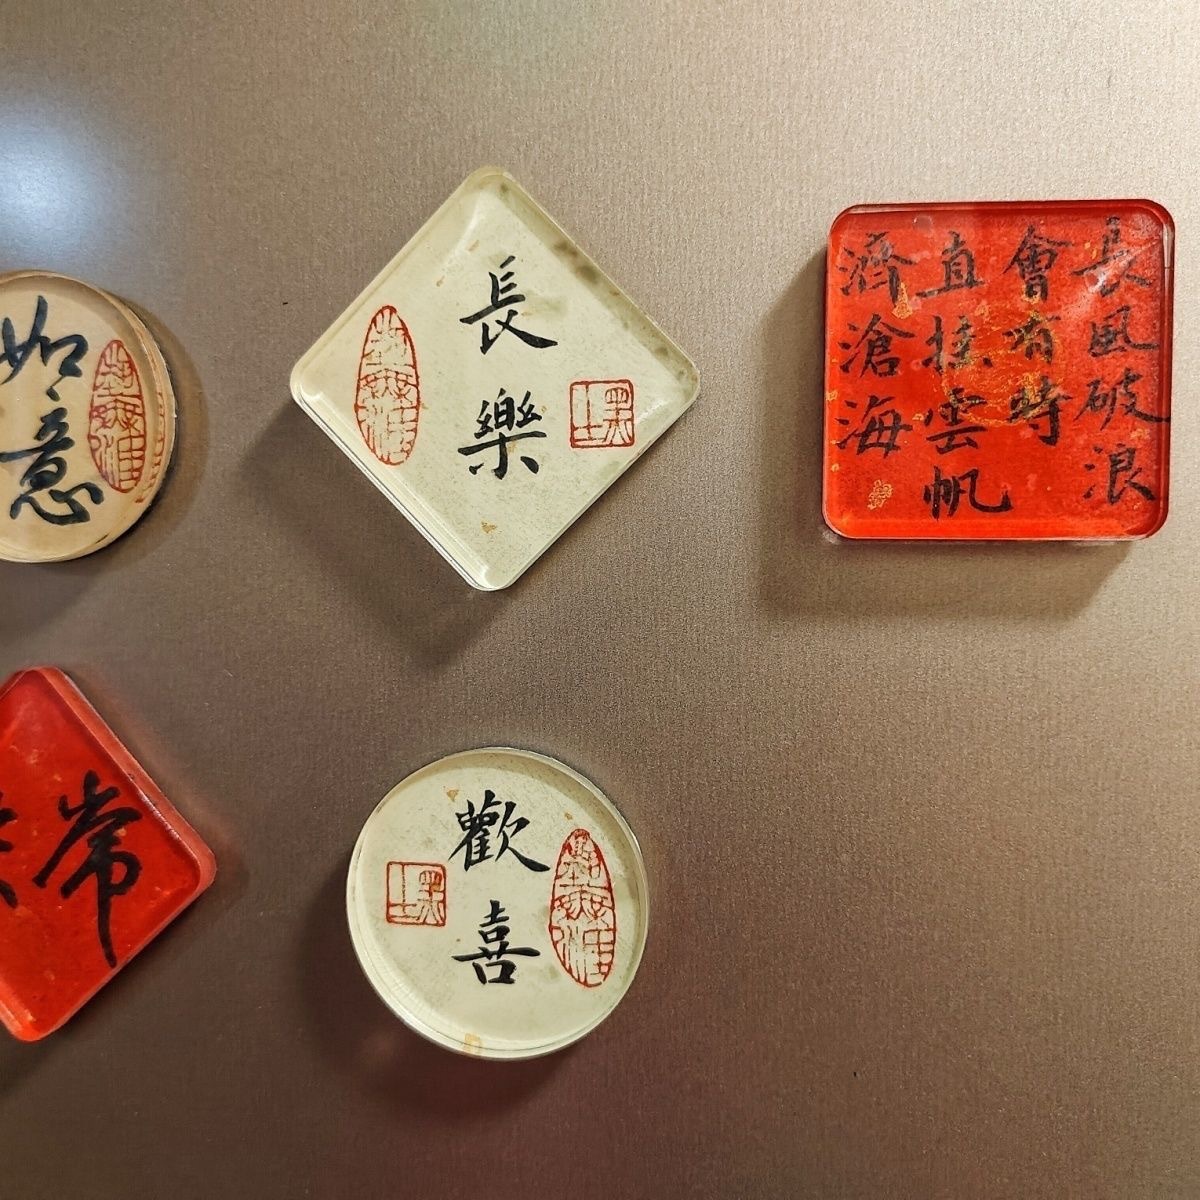 如意
長樂
長風破浪
會有時
直挂雲帆
濟滄海
常
歡喜